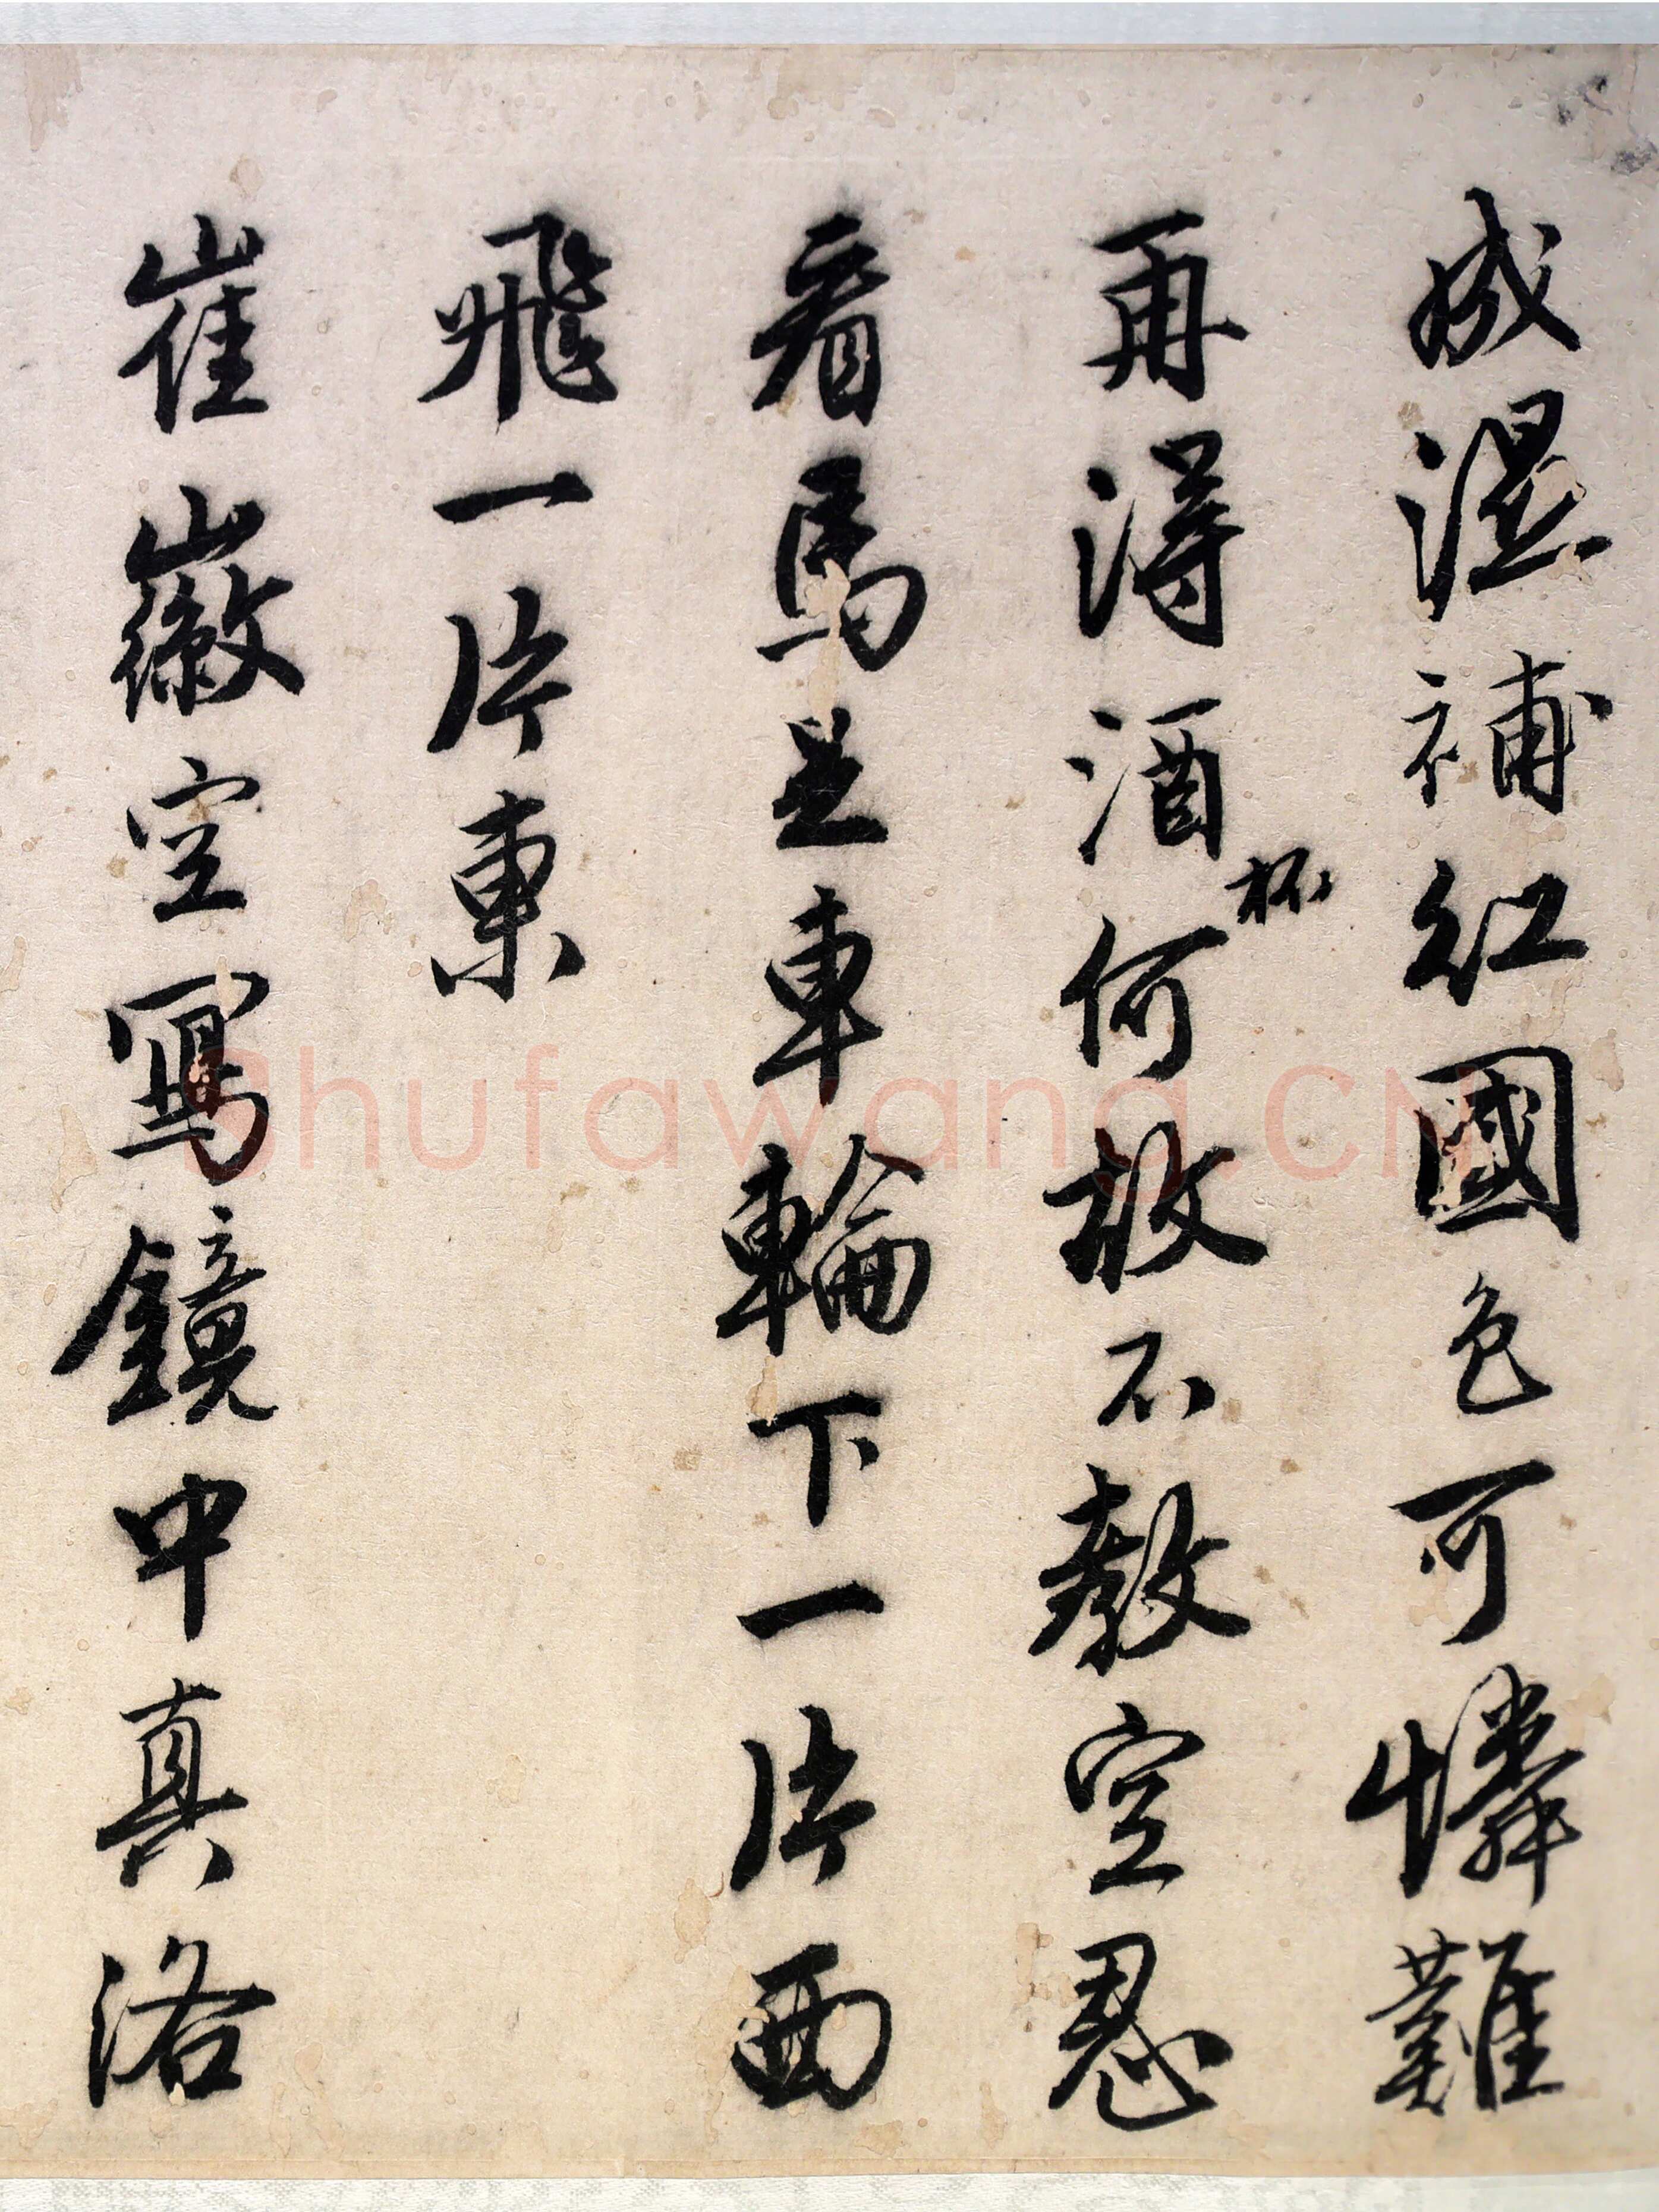 成濕補紅國色可憐難
再得酒杯何故不教空忍
看馬足車輪下一片西
飛一片東
崔徽空寫鏡中真洛
Shufawang.CN